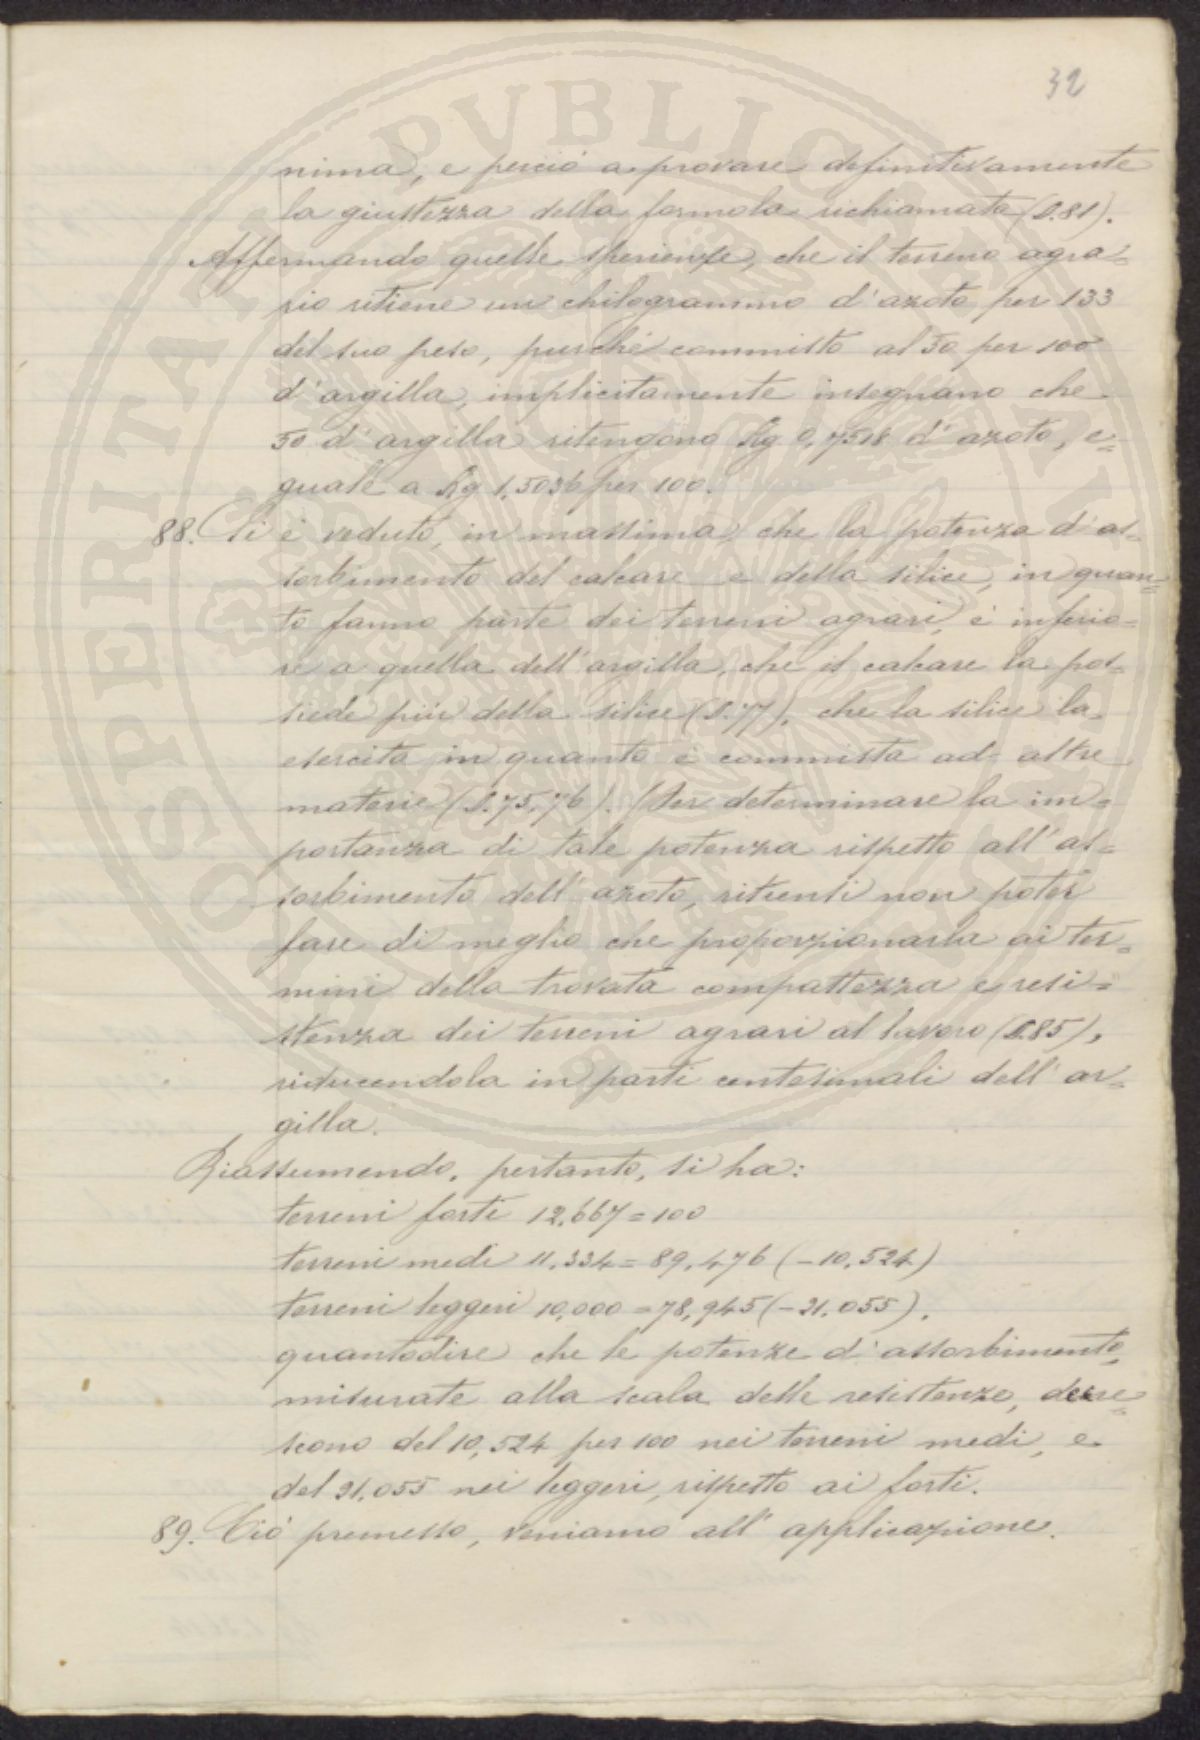 32
nima, e perciò a provare definitivamente
la giustezza della formola richiamata (§.81).
Affermando quelle sperienze, che il terreno agra=
rio ritiene un chilogrammo d'azoto per 133
del suo peso, purchè commisto al 50 per 100
d'argilla, implicitamente insegnano che
50 d'argilla ritengono Kg 0,7518 d'azoto, e=
guale a Kg 1,5036 per 100.
88. Si è veduto, in massima, che la potenza d'as=
sorbimento del calcare e della silice, in quan=
to fanno parte dei terreni agrari, è inferio=
re a quella dell'argilla, che il calcare la pos=
siede più della silice (§.77), che la silice la
esercita in quanto è commista ad altre
materie (§.75,76). Per determinare la im=
portanza di tale potenza rispetto all'as=
sorbimento dell'azoto, ritienti non poter
fare di meglio che proporzionarla ai ter=
mini della trovata compattezza e resi=
stenza dei terreni agrari al lavoro (§.85),
riducendola in parti centesimali dell'ar=
gilla.
Riassumendo, pertanto, si ha:
terreni forti 12,667 = 100
terreni medi 11,334 = 89,476 (-10,524)
terreni leggeri 10,000 = 78,945 (-21,055).
quantodire che le potenze d'assorbimento,
misurate alla scala delle resistenze, decre=
scono del 10,524 per 100 nei terreni medi, e
del 21,055 nei leggeri, rispetto ai forti.
89. Ciò premesso, veniamo all'applicazione.